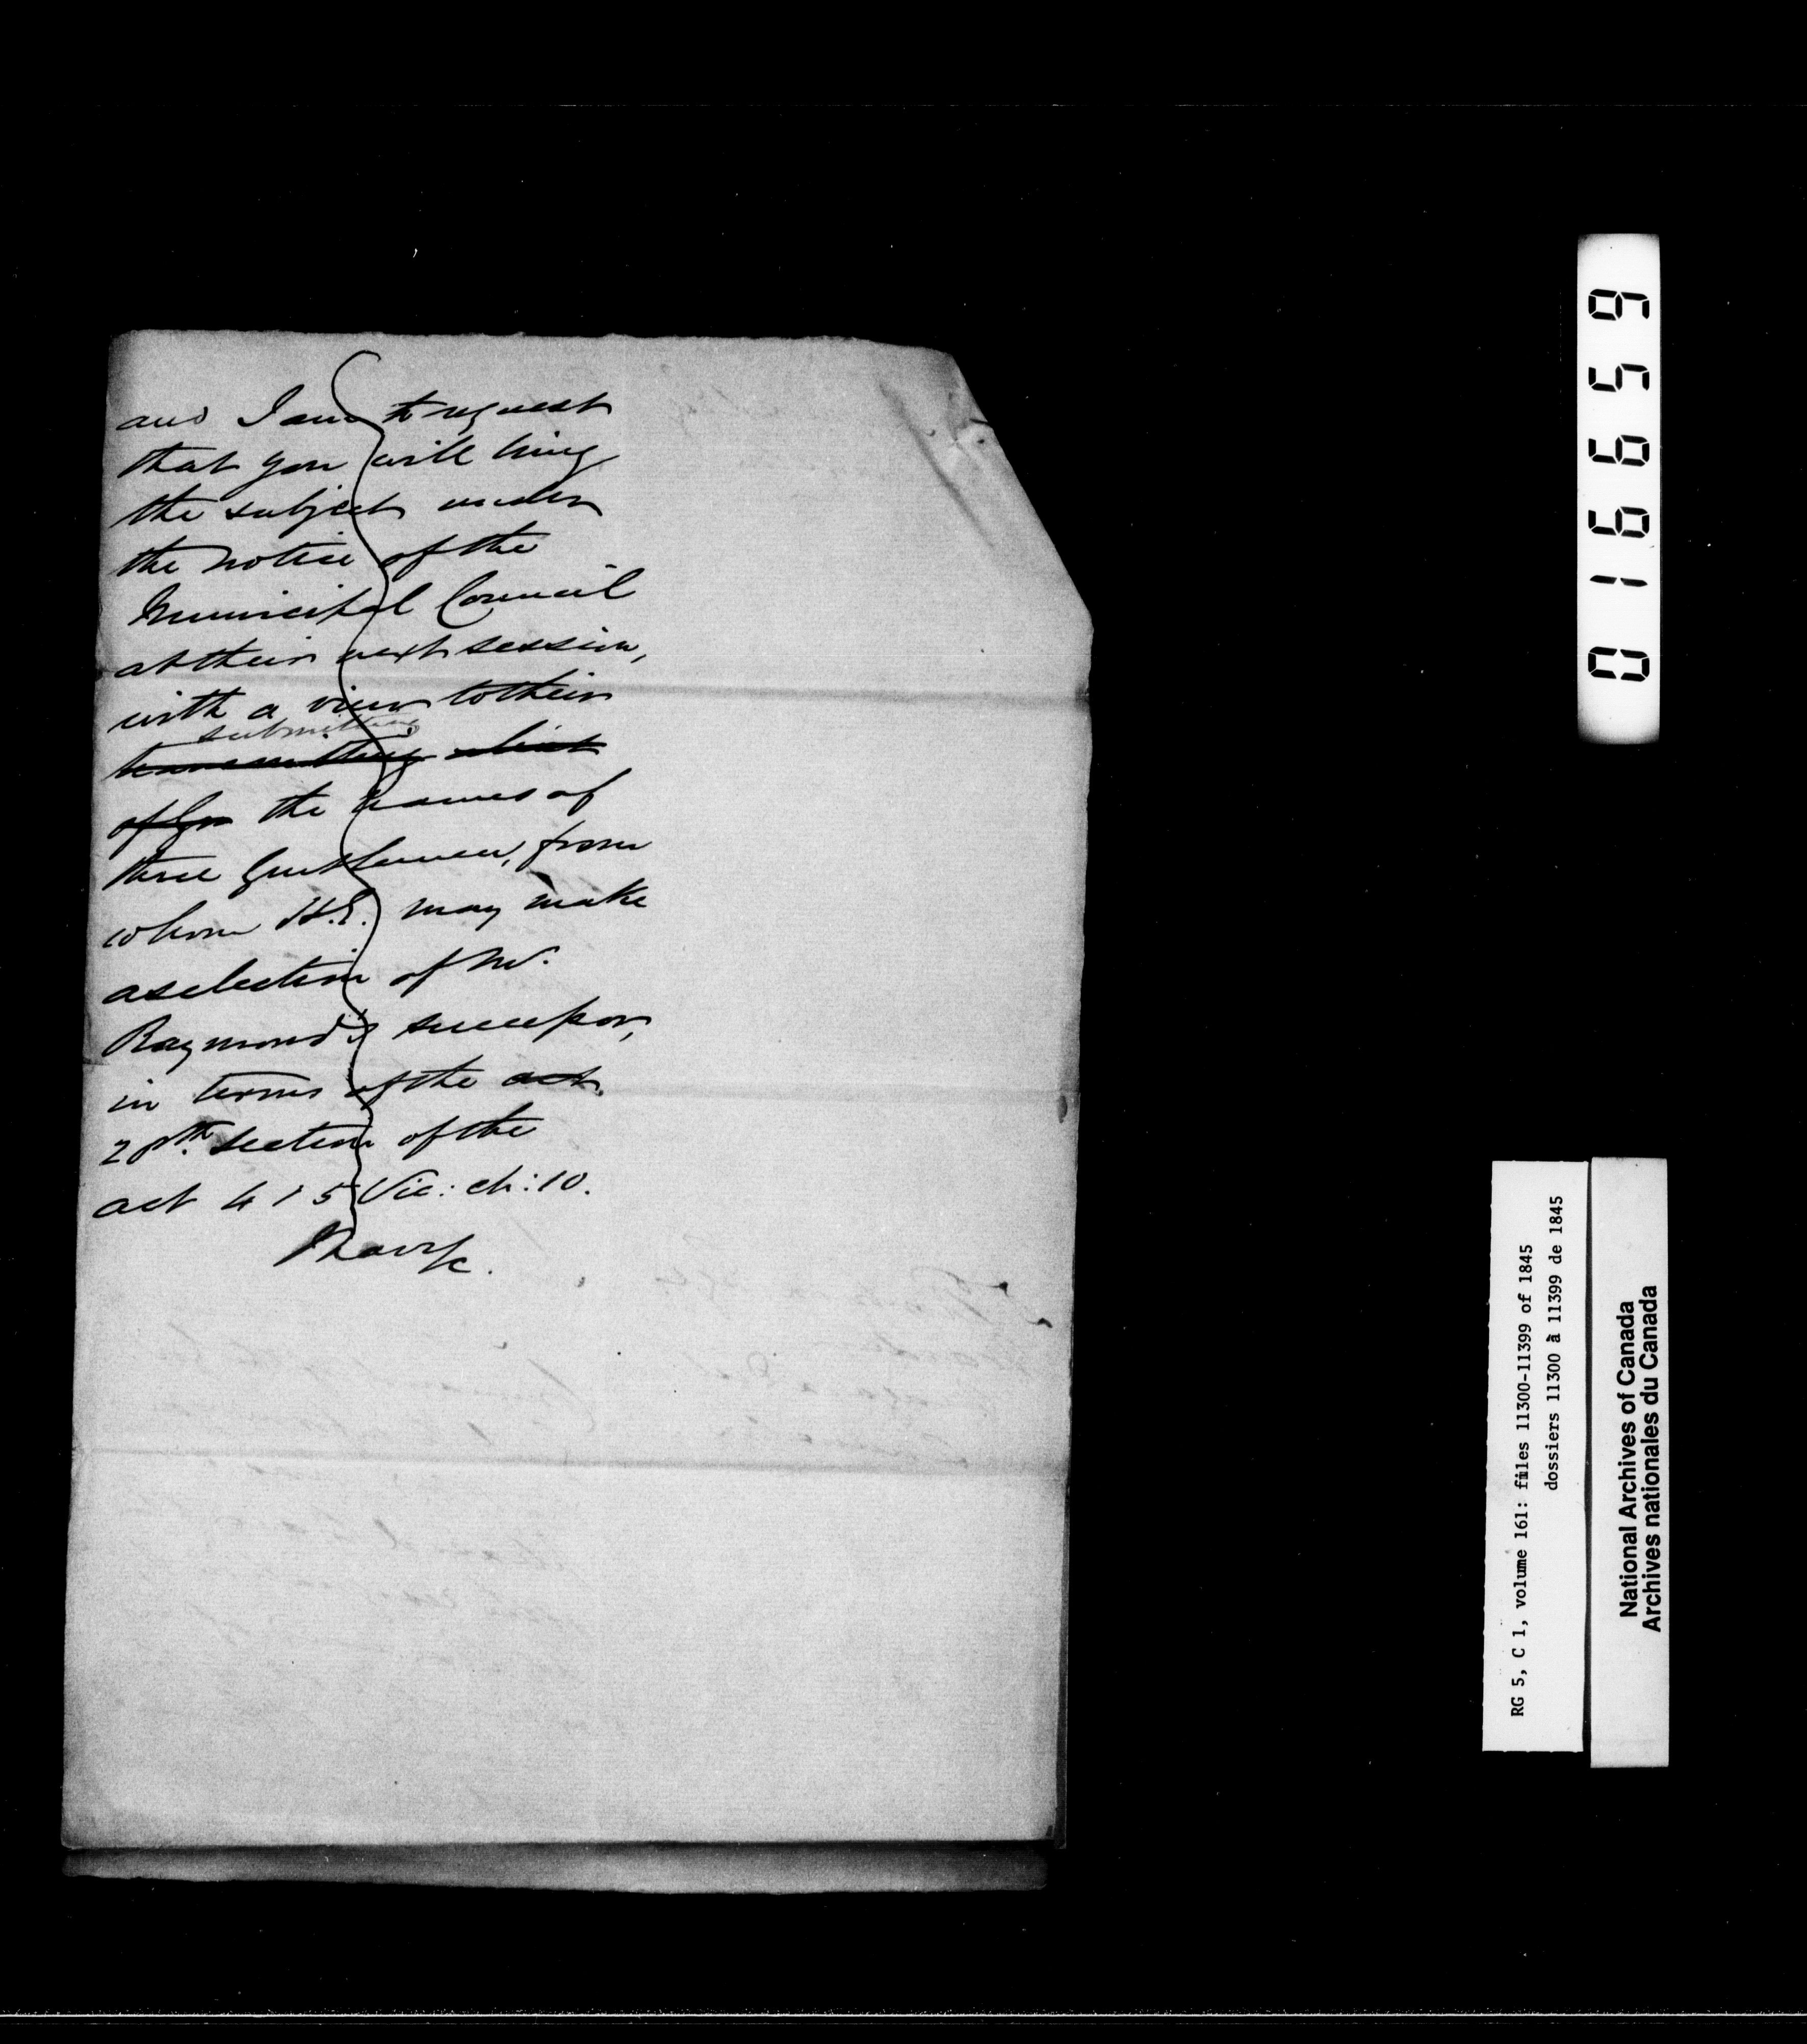 and I am to request
that you will bring
the subject under
the notice of the
Municipal Council
at their next session,
with a view to their
submitting
transmitting a list
of Gen the names of
three Gentlemen, from
whom H.E. may make
a selection of Mr.
Raymond's successor,
in terms of the act
section of the
act 4 & 5 Vic: ch: 10.
I have &c.
016659
RG 5, C 1, volume 161: files 11300-11399 of 1845
dossiers 11300 à 11399 de 1845
National Archives of Canada
Archives nationales du Canada